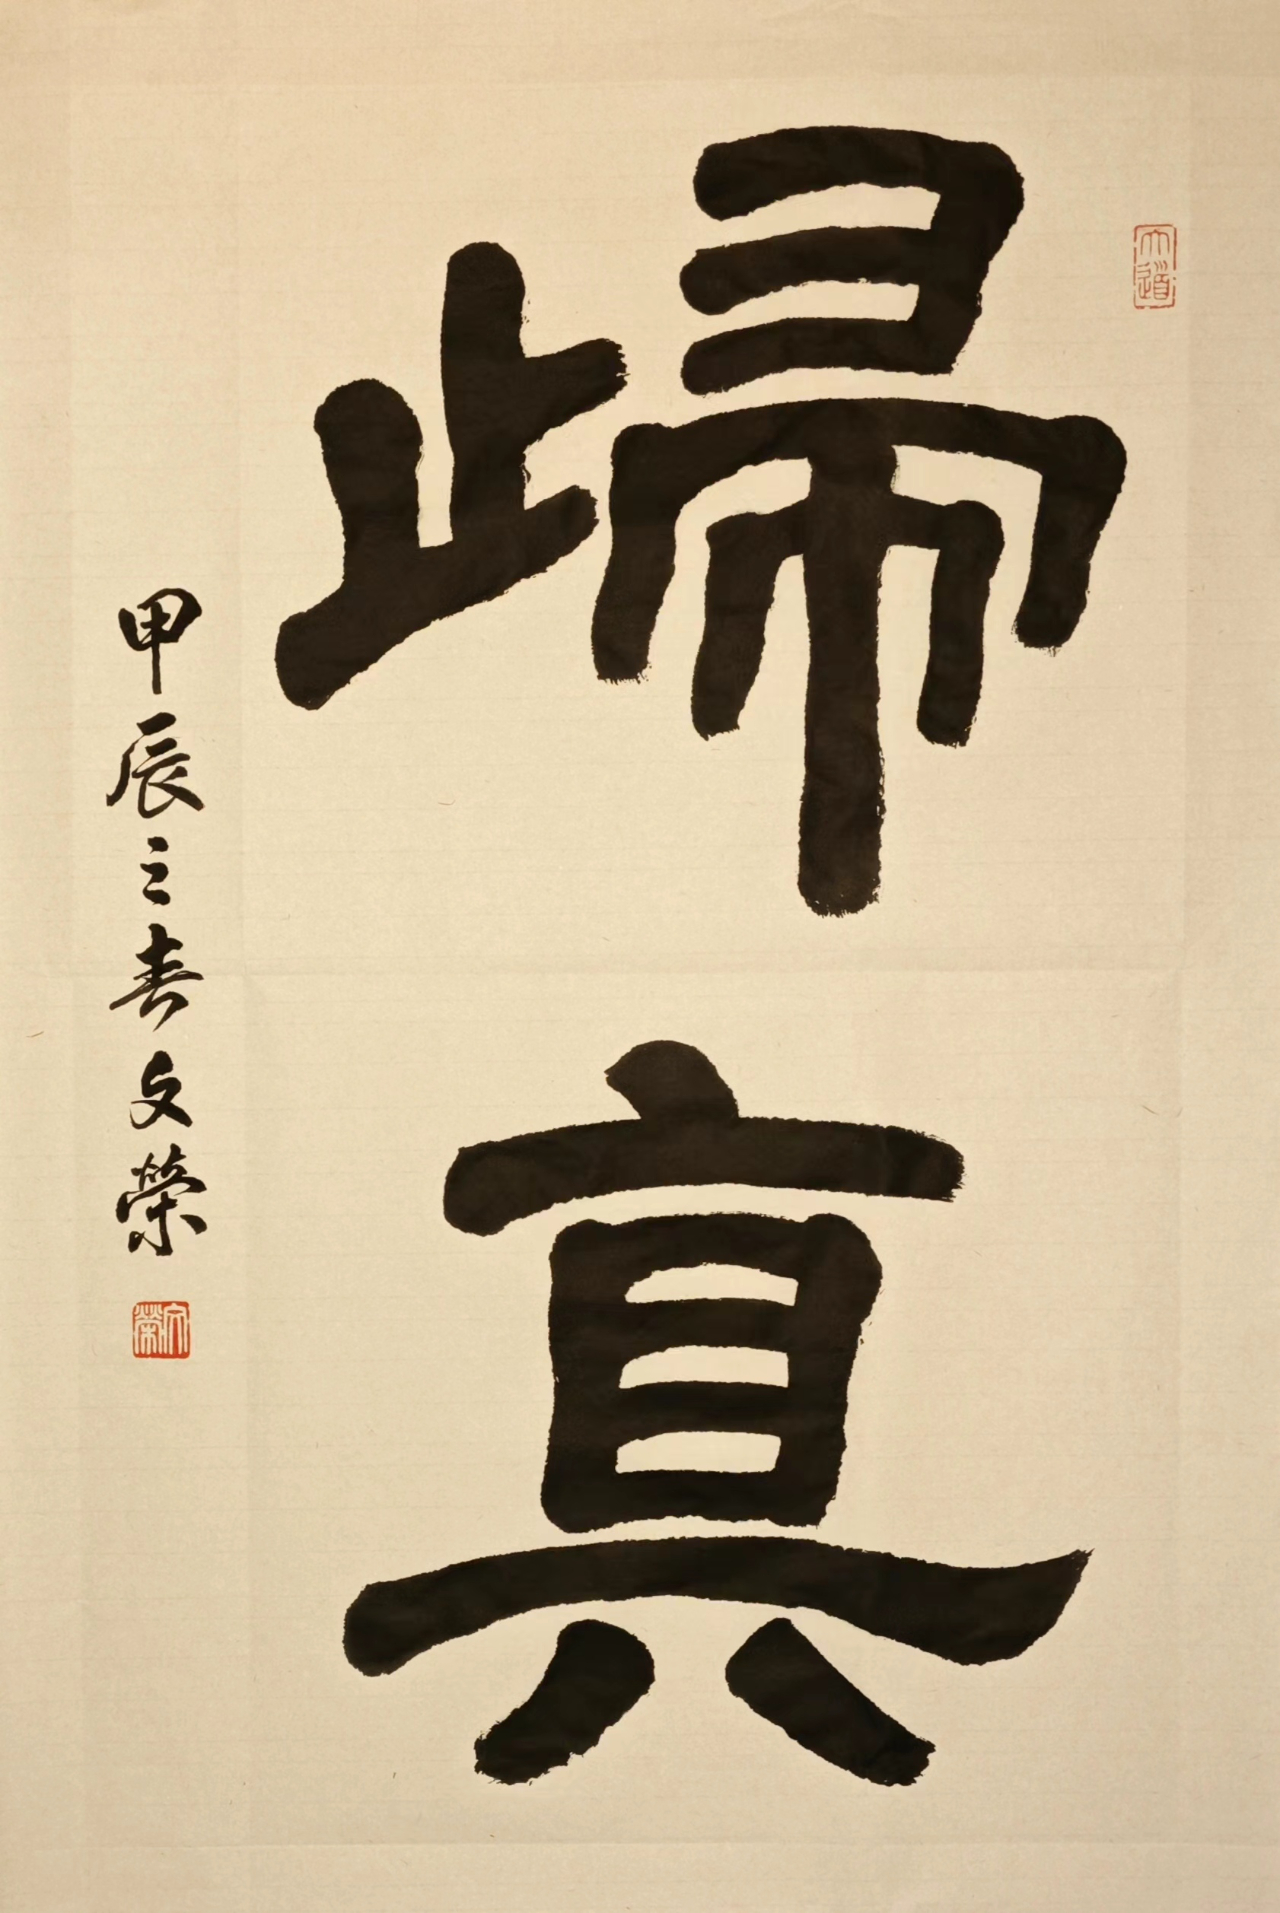 大道
歸真
甲辰之春文榮
文榮